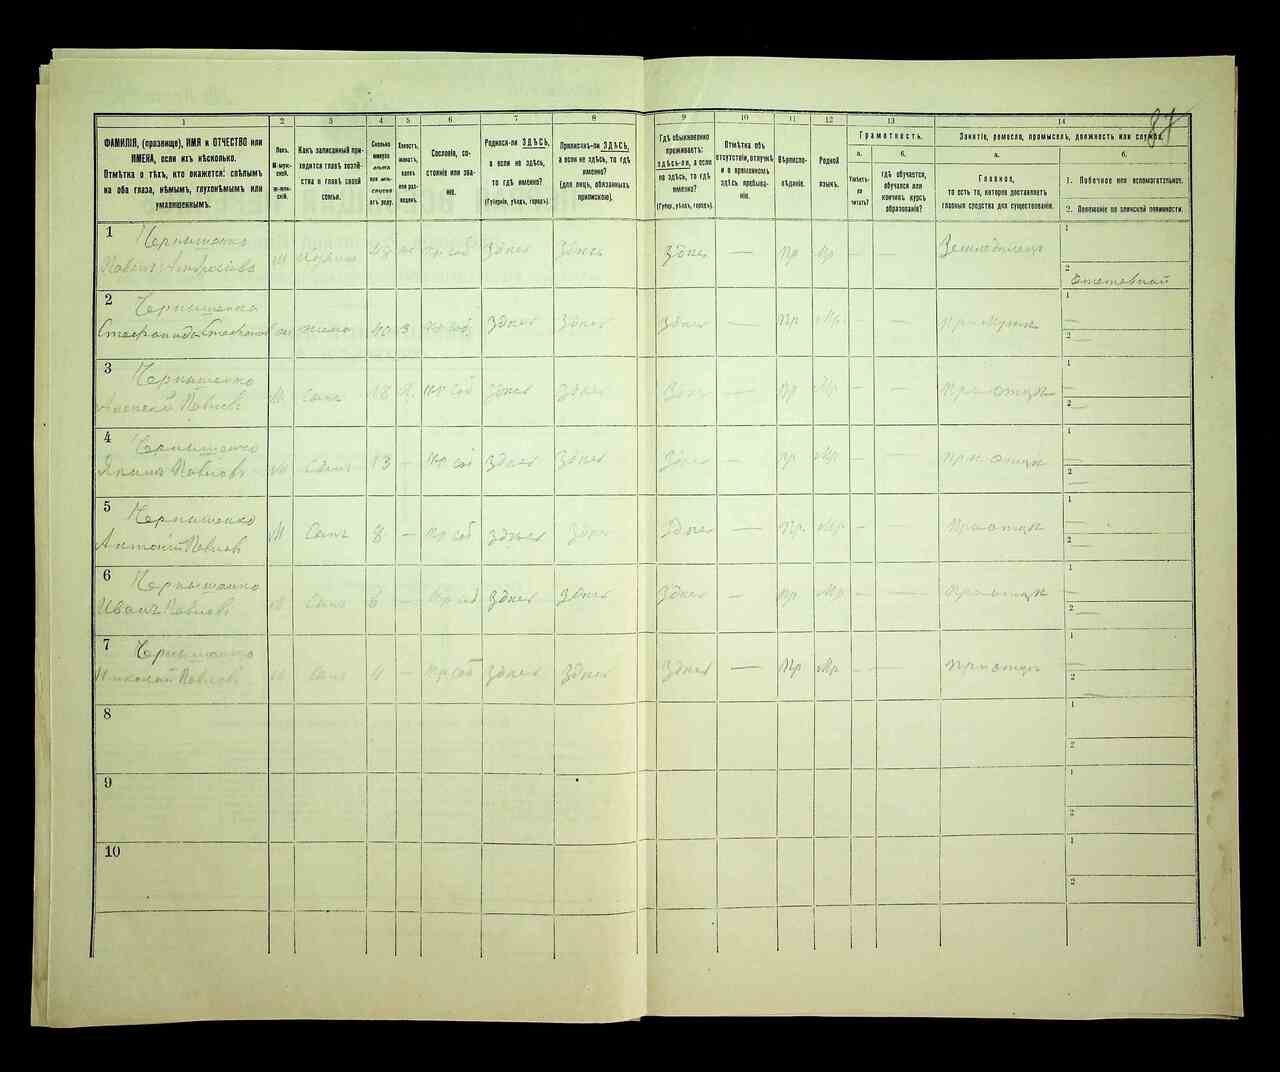 87
1 2 3 4 5 6 7 8 9 10 11 12 13 14
ФАМИЛІЯ, (прозвище), ИМЯ и ОТЧЕСТВО или
ИМЕНА, если ихъ нѣсколько.
Отмѣтка о тѣхъ, кто окажется: слѣпымъ
на оба глаза, нѣмымъ, глухонѣмымъ или
умалишеннымъ.
Полъ.
М-муж-
ской.
Ж-жен-
скій.
Какъ записанный при-
ходится главѣ хозяй-
ства и главѣ своей
семьи.
Сколько
минуло
лѣтъ
или мѣся-
цевъ
отъ роду.
Холостъ,
женатъ,
вдовъ
или раз-
веденъ.
Сословіе, со-
стояніе или зва-
ніе.
Родился-ли ЗДѢСЬ,
а если не здѣсь,
то гдѣ именно?
(Губернія, уѣздъ, городъ).
Приписанъ-ли ЗДѢСЬ,
а если не здѣсь, то гдѣ
именно?
(для лицъ, обязанныхъ
припискою).
Гдѣ обыкновенно
проживаетъ:
здѣсь-ли, а если
не здѣсь, то гдѣ
именно?
(Губер., уѣздъ, городъ).
Отмѣтка объ
отсутствіи, отлучкѣ
и о временномъ
здѣсь пребыва-
ніи.
Вѣроиспо-
вѣданіе.
Родной
языкъ.
Грамотность.
а.
Умѣетъ-
ли
читать?
б.
гдѣ обучается,
обучался или
кончилъ курсъ
образованія?
Занятіе, ремесло, промыселъ, должность или служба.
а.
Главное,
то есть то, которое доставляетъ
главныя средства для существованія.
б.
1. Побочное или вспомогательное.
2. Положеніе по воинской повинности.
1 Чернышенко
Павелъ М 48 кр соб Здѣсь Здѣсь Здѣсь — Пр Мр — — Земледѣлецъ
1
2
2 Чернышенко
Стефанида жена 40 З кр соб Здѣсь Здѣсь Здѣсь — Пр Мр — — При мужѣ
1 —
2 —
3 Чернышенко
Алексѣй Павловъ М Сынъ 18 Х кр соб Здѣсь Здѣсь Здѣсь — Пр Мр — — При отцѣ
1 —
2 —
4 Чернышенко
Павловъ М Сынъ 13 — кр соб Здѣсь Здѣсь Здѣсь — Пр Мр — — При отцѣ
1 —
2 —
5 Чернышенко
Антонъ Павловъ М Сынъ 8 — кр соб Здѣсь Здѣсь Здѣсь — Пр Мр — — При отцѣ
1 —
2 —
6 Чернышенко
Иванъ Павловъ М Сынъ 6 — кр соб Здѣсь Здѣсь Здѣсь — Пр Мр — — При отцѣ
1 —
2 —
7 Чернышенко
Николай Павловъ М Сынъ 4 — кр соб Здѣсь Здѣсь Здѣсь — Пр Мр — — При отцѣ
1 —
2 —
8
1
2
9
1
2
10
1
2